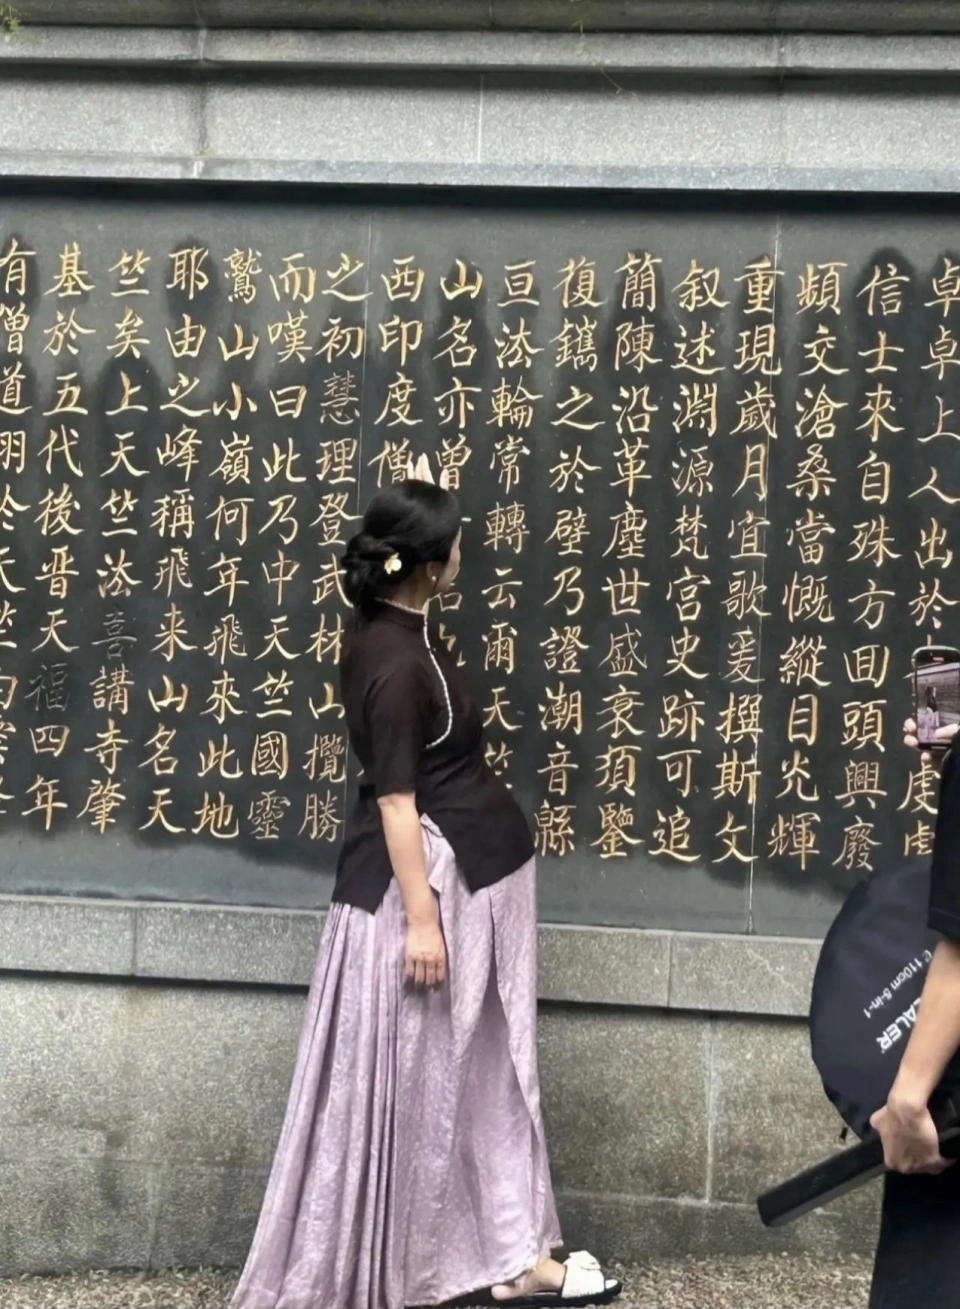 卓卓上人出於虔
信士來自殊方囬頭興廢
頻交滄桑當慨縱目光輝
重現歲月宜歌爰撰斯文
叙述淵源梵宮史跡可追
簡陳沿革塵世盛衰須鑒
復鐫之於壁乃證潮音縣
亘法輪常轉云爾天竺
山名亦曾
西印度僧
之初慧理登武林山攬勝
而嘆曰此乃中天竺國靈
鷲山小嶺何年飛來此地
耶由之峰稱飛来山名天
竺矣上天竺法喜講寺肇
基於五代後晋天福四年
有僧道翊於
110cm 5-in-1